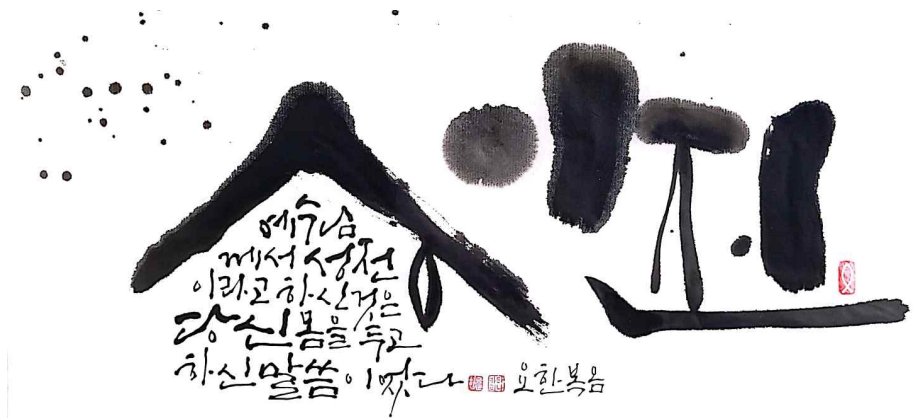 성전
예수님
께서 성전
이라고 하신것은
당신 몸을 두고
하신 말씀이었다 요한복음